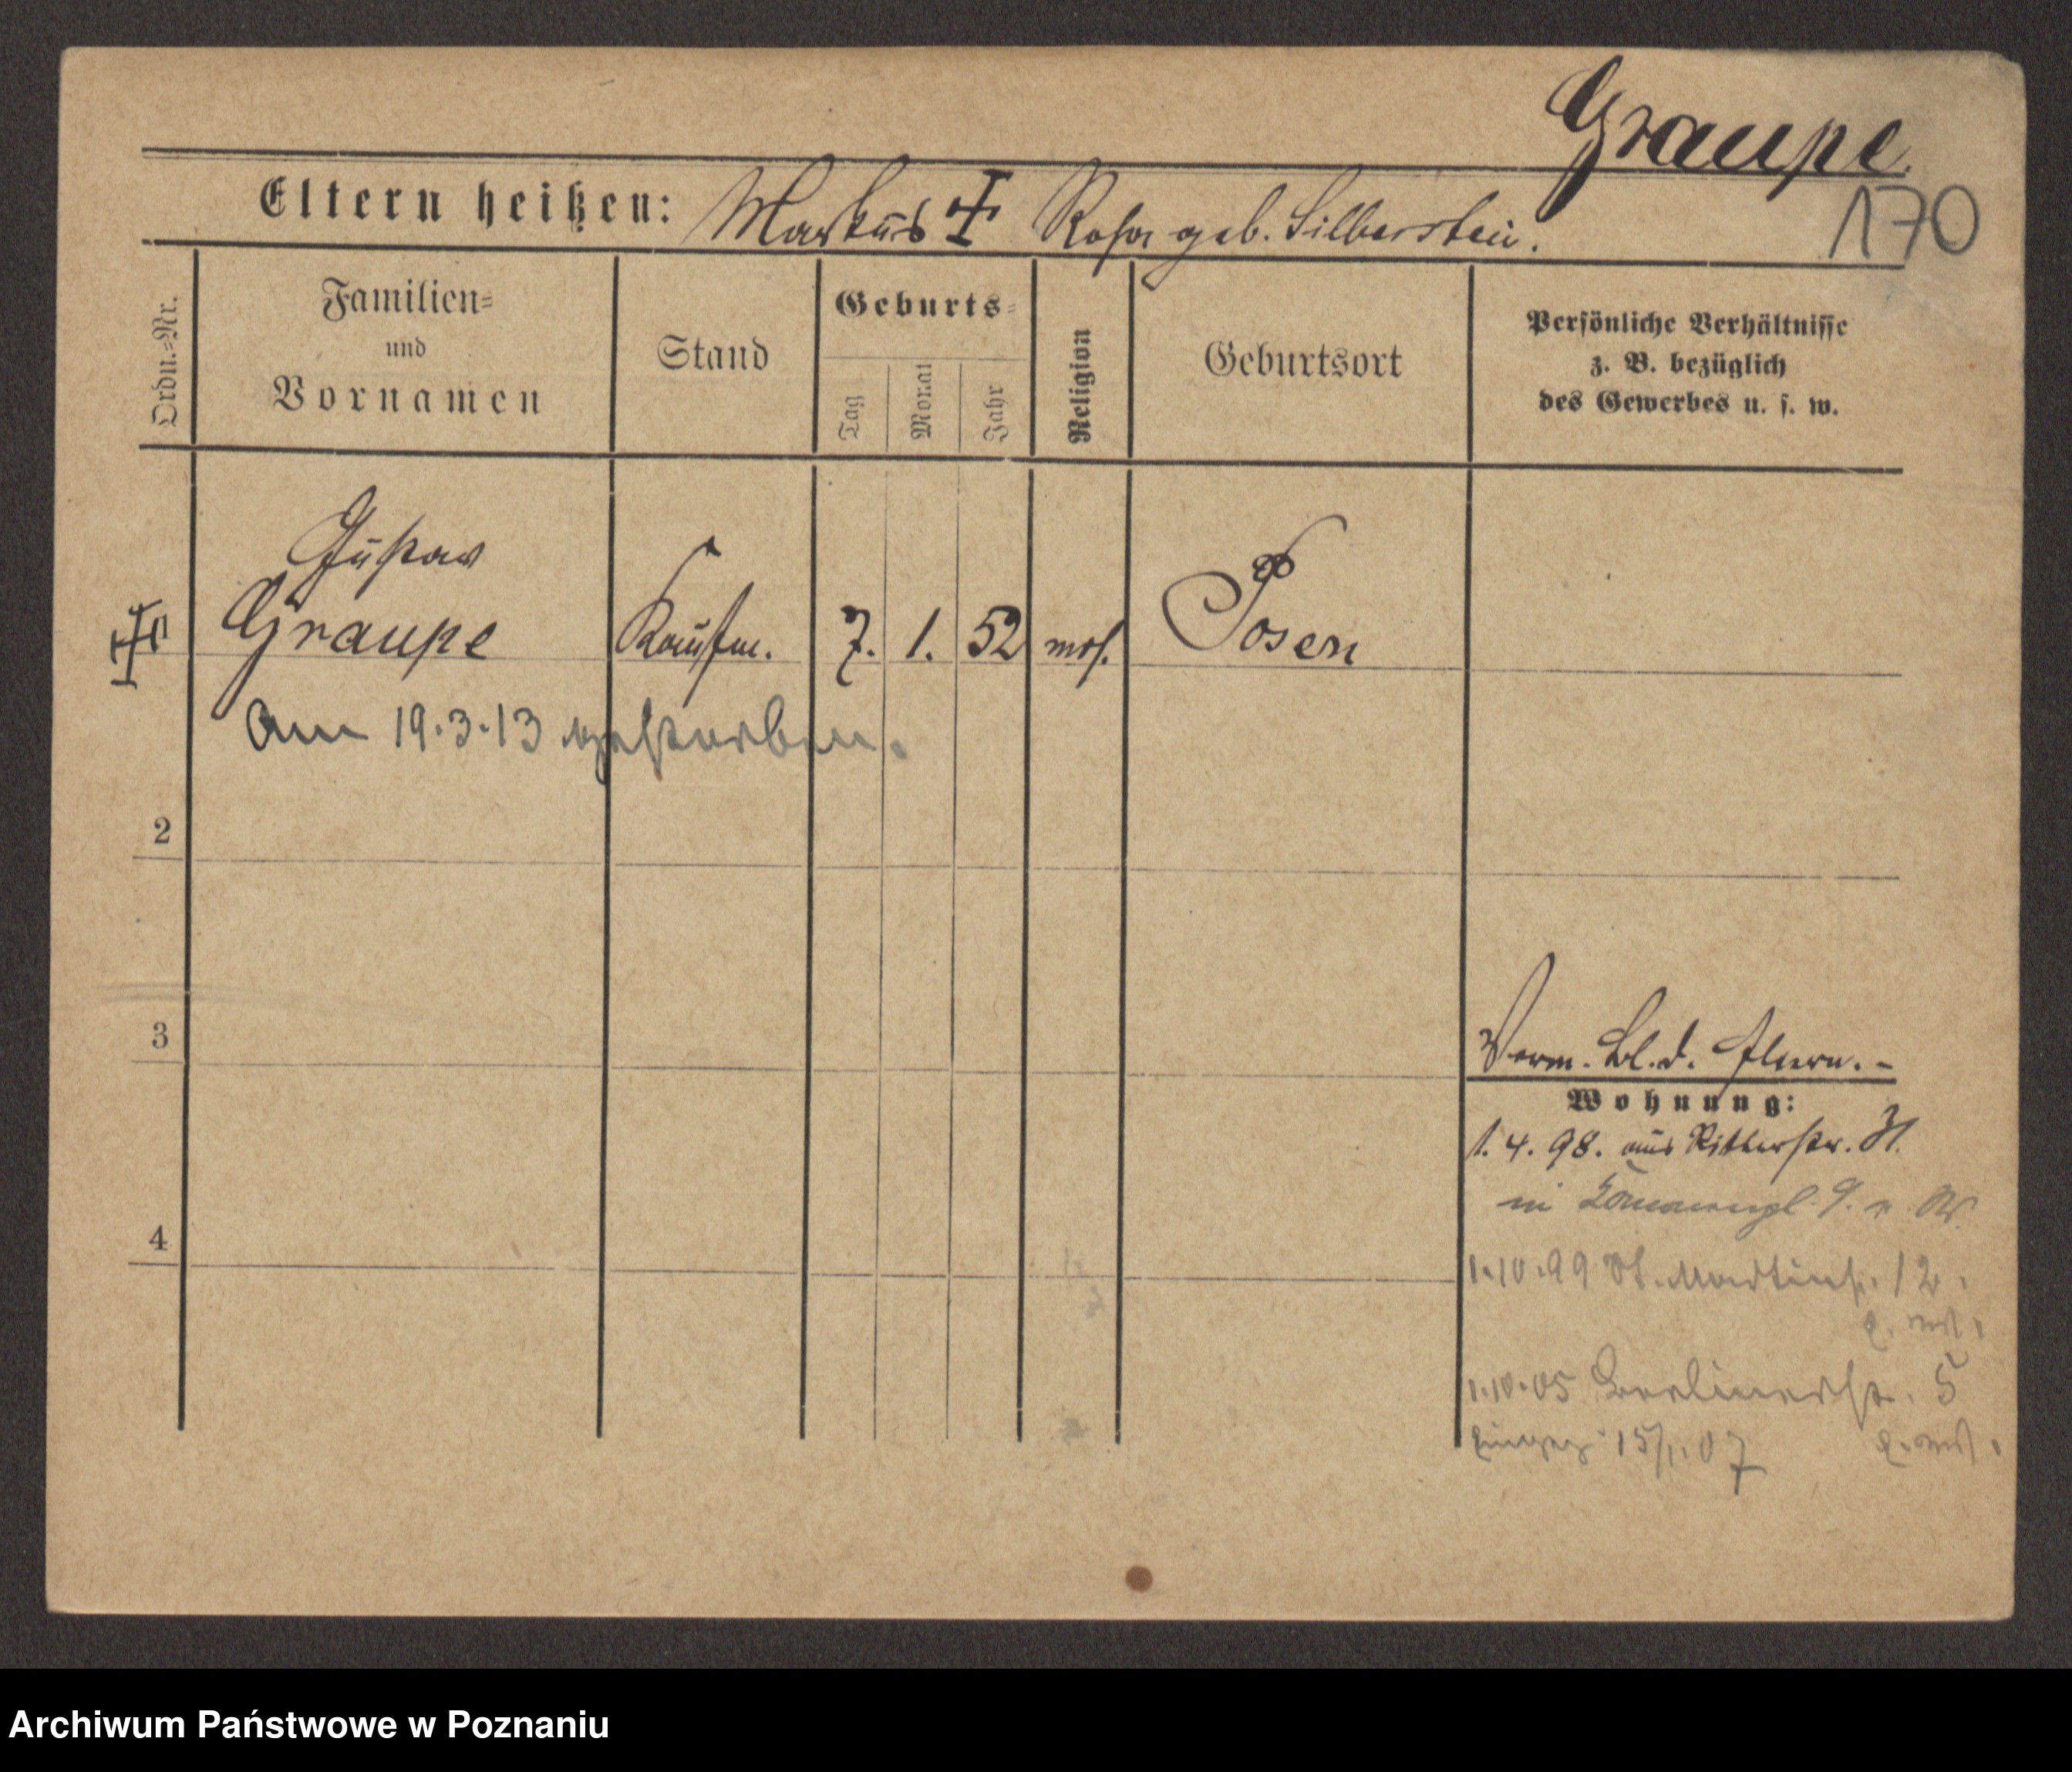 Graupe.
170
Eltern heißen: Markus Rosa geb. Silberstein.
Ordn.=Nr.
Familien=
und
Vornamen
Stand
Geburts=
Tag
Monat
Jahr
Religion
Geburtsort
Persönliche Verhältnisse
z. B. bezüglich
des Gewerbes u. s. w.
Gustav
Graupe Kaufm. 7. 1. 52 mos. Posen
Am 19.3.13 gestorben.
2
3
Verm. Bl. d. Eltern. -
Wohnung:
1. 4. 98. aus Ritterstr.
in
4
1.10.99 St. Martinstr. 12.
1.10.05 Berlinerstr. 5
15/1.07
Archiwum Państwowe w Poznaniu